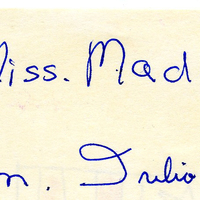 Miss. Mad
m. Julio